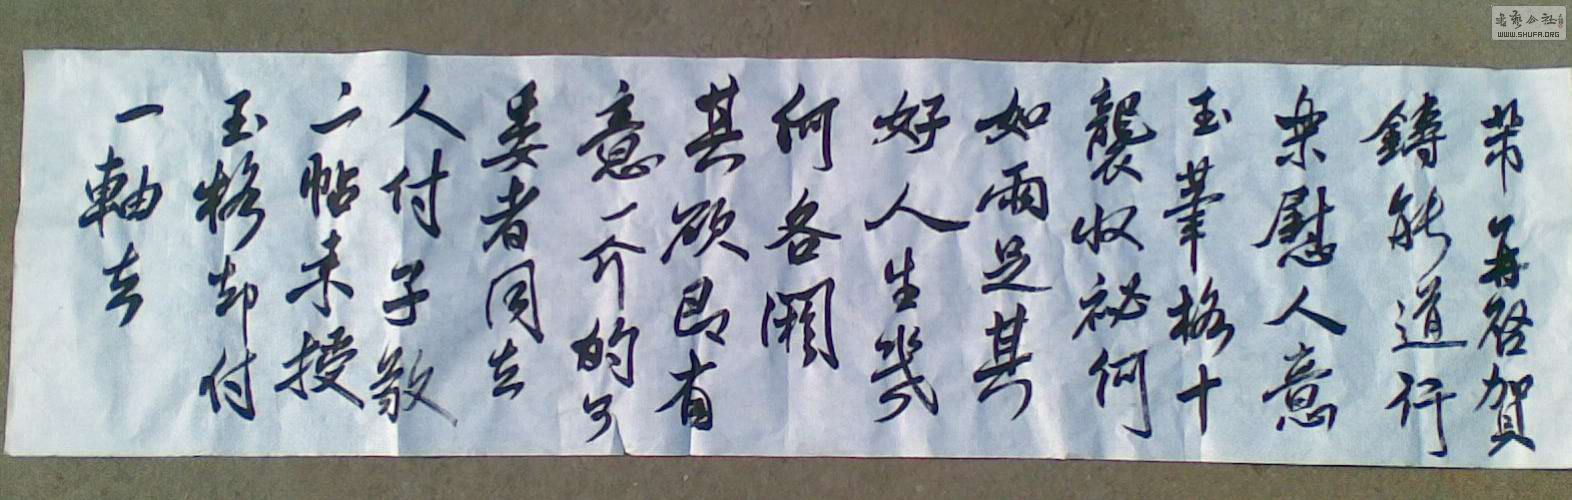 芾再啓賀
鑄能道行
樂慰人意
玉筆格十
襲收祕何
如兩足其
好人生幾
何各闕
其欲即有
意一介的可
委者同去
人付子敬
二帖来授
玉格却付
一軸去
書藝公社
WWW.SHUFA.ORG